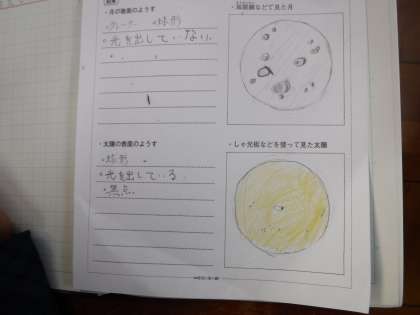 結果
・月の表面のようす
・クレーター ・球形
・光を出していない。
・太陽の表面のようす
・球形
・光を出している。
・黒点
・望遠鏡などで見た月
・しゃ光板などを使って見た太陽